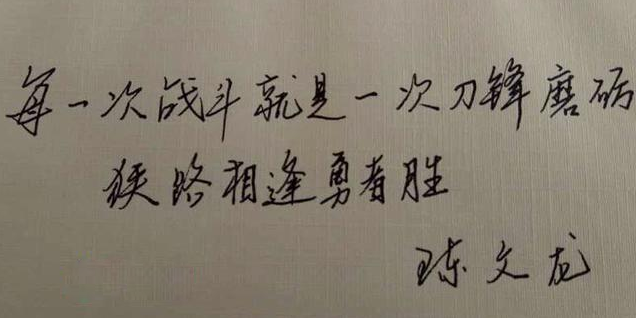 每一次战斗就是一次刀锋磨砺
狭路相逢勇者胜
陈文龙